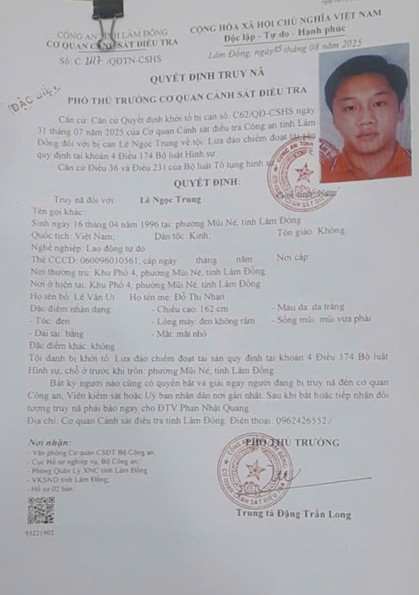 CÔNG AN TỈNH LÂM ĐỒNG
CƠ QUAN CẢNH SÁT ĐIỀU TRA
CỘNG HÒA XÃ HỘI CHỦ NGHĨA VIỆT NAM
Độc lập - Tự do - Hạnh phúc
Số: C /QĐTN-CSHS
Lâm Đồng, ngày 05 tháng 08 năm 2025
ĐẶC BIỆT
QUYẾT ĐỊNH TRUY NÃ
PHÓ THỦ TRƯỞNG CƠ QUAN CẢNH SÁT ĐIỀU TRA
Căn cứ: Căn cứ Quyết định khởi tố bị can số: C62/QĐ-CSHS ngày
31 tháng 07 năm 2025 của Cơ quan Cảnh sát điều tra Công an tỉnh Lâm
Đồng đối với bị can Lê Ngọc Trung về tội: Lừa đảo chiếm đoạt tài sản
quy định tại khoản 4 Điều 174 Bộ luật Hình sự
Căn cứ Điều 36 và Điều 231 của Bộ luật Tố tụng hình sự
QUYẾT ĐỊNH:
Truy nã đối với Lê Ngọc Trung Giới tính: Nam
Tên gọi khác:
Sinh ngày 16 tháng 04 năm 1996 tại: phường Mũi Né, tỉnh Lâm Đồng
Quốc tịch: Việt Nam; Dân tộc: Kinh; Tôn giáo: Không
Nghề nghiệp: Lao động tự do
Thẻ CCCD: 060096010561; cấp ngày tháng năm Nơi cấp:
Nơi thường trú: Khu Phố 4, phường Mũi Né, tỉnh Lâm Đồng
Nơi ở hiện tại: Khu Phố 4, phường Mũi Né, tỉnh Lâm Đồng
Họ tên bố: Lê Văn Út Họ tên mẹ: Đỗ Thị Nhạn
Đặc điểm nhân dạng: - Chiều cao: 162 cm - Màu da: da trắng
- Tóc: đen - Lông mày: đen không rậm - Sống mũi: mũi vừa phải
- Dái tai: bằng - Mắt: mắt nhỏ
Đặc điểm khác: không
Tội danh bị khởi tố: Lừa đảo chiếm đoạt tài sản quy định tại khoản 4 Điều 174 Bộ luật
Hình sự, chỗ ở trước khi trốn: phường Mũi Né, tỉnh Lâm Đồng.
Bất kỳ người nào cũng có quyền bắt và giải ngay người đang bị truy nã đến cơ quan
Công an, Viện kiểm sát hoặc Uỷ ban nhân dân nơi gần nhất. Sau khi bắt hoặc tiếp nhận đối
tượng truy nã phải báo ngay cho ĐTV Phan Nhật Quang
Địa chỉ: Cơ quan Cảnh sát điều tra tỉnh Lâm Đồng. Điện thoại: 0962426552./
Nơi nhận:
- Văn phòng Cơ quan CSĐT Bộ Công an;
- Cục Hồ sơ nghiệp vụ, Bộ Công an;
- Phòng Quản Lý XNC tỉnh Lâm Đồng;
- VKSND tỉnh Lâm Đồng;
- Hồ sơ 02 bản.
PHÓ THỦ TRƯỞNG
Trung tá Đặng Trần Long
93221902